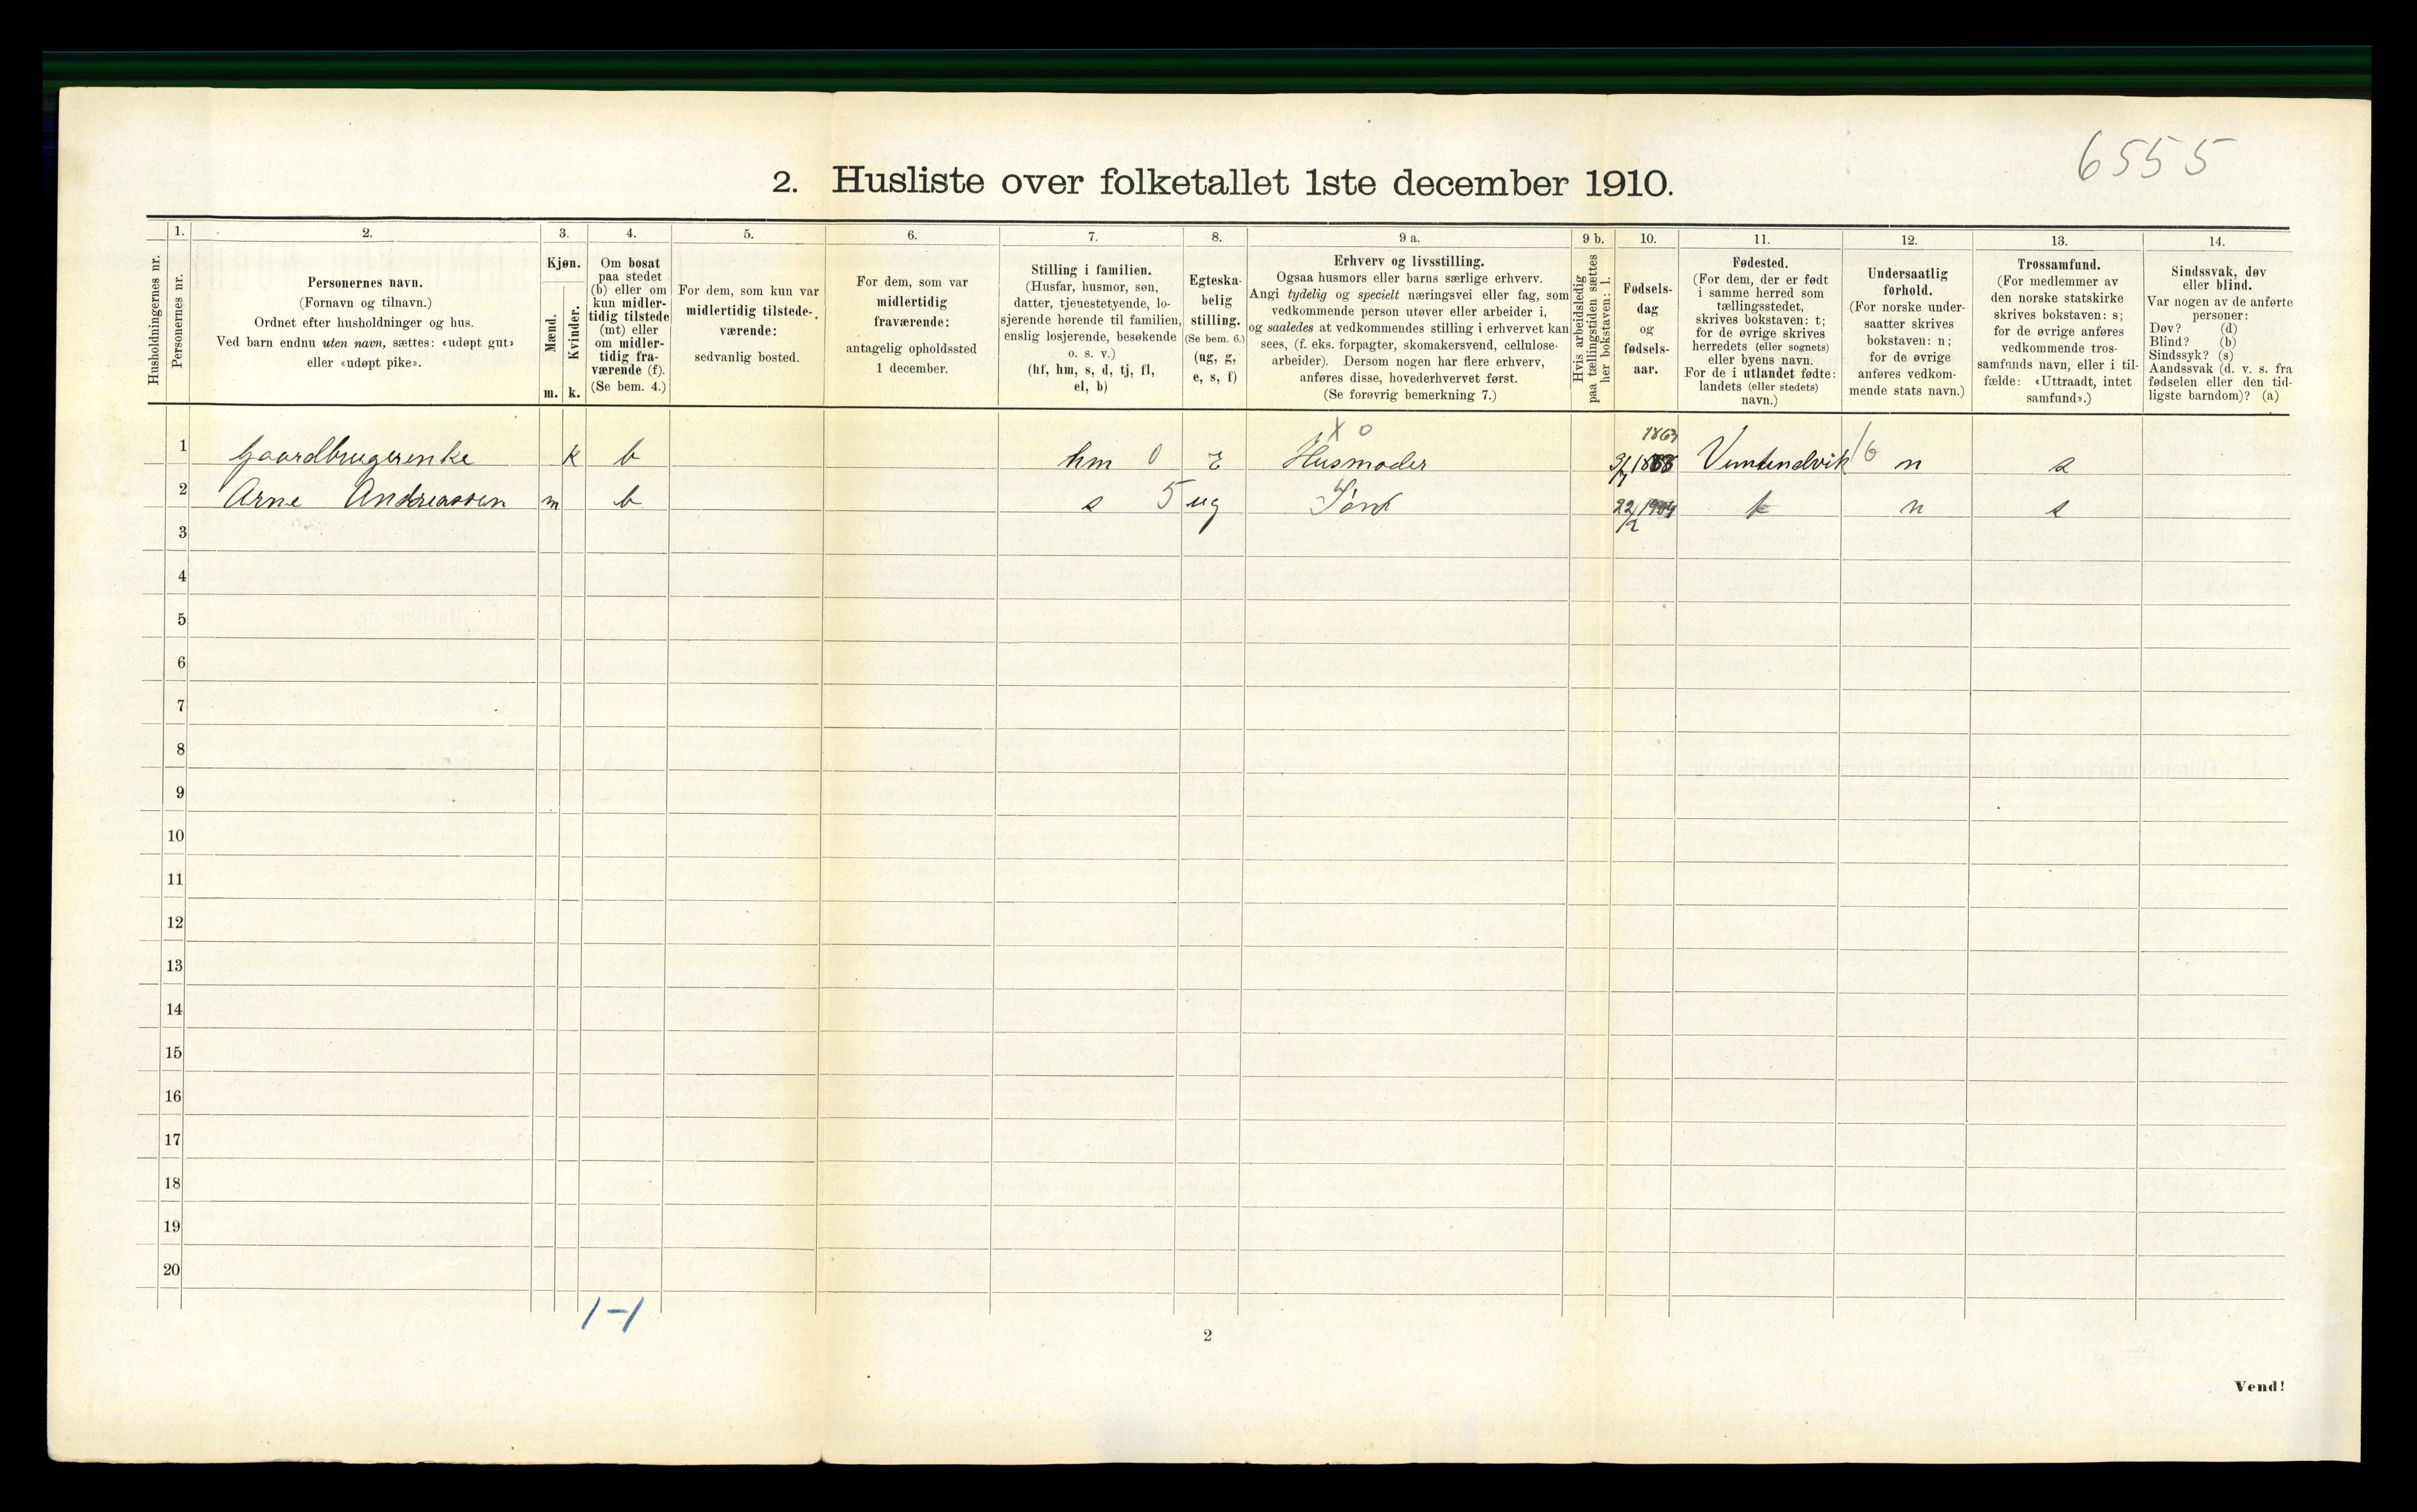 6555
2. Husliste over folketallet 1ste december 1910.
Husholdningernes nr.
1.
Personernes nr.
2.
Personernes navn.
(Fornavn og tilnavn.)
Ordnet efter husholdninger og hus.
Ved barn endnu uten navn, sættes: «udøpt gut»
eller «udøpt pike».
3.
Kjøn.
Mænd.
Kvinder.
m. k.
4.
Om bosat
paa stedet
(b) eller om
kun midler-
tidig tilstede
(mt) eller
om midler-
tidig fra-
værende (f).
(Se bem. 4.)
5.
For dem, som kun var
midlertidig tilstede-
værende:
sedvanlig bosted.
6.
For dem, som var
midlertidig
fraværende:
antagelig opholdssted
1 december.
7.
Stilling i familien.
(Husfar, husmor, søn,
datter, tjenestetyende, lo-
sjerende hørende til familien,
enslig losjerende, besøkende
o. s. v.)
(hf, hm, s, d, tj, fl,
el, b)
8.
Egteska-
belig
stilling.
(Se bem. 6.)
(ug, g,
e, s, f)
9 a.
Erhverv og livsstilling.
Ogsaa husmors eller barns særlige erhverv.
Angi tydelig og specielt næringsvei eller fag, som
vedkommende person utøver eller arbeider i,
og saaledes at vedkommendes stilling i erhvervet kan
sees, (f. eks. forpagter, skomakersvend, cellulose-
arbeider). Dersom nogen har flere erhverv,
anføres disse, hovederhvervet først.
(Se forøvrig bemerkning 7.)
9 b.
Hvis arbeidsledig
paa tællingstiden sættes
her bokstaven: l.
10.
Fødsels-
dag
og
fødsels-
aar.
11.
Fødested.
(For dem, der er født
i samme herred som
tællingsstedet,
skrives bokstaven: t;
for de øvrige skrives
herredets (eller sognets)
eller byens navn.
For de i utlandet fødte:
landets (eller stedets)
navn.)
12.
Undersaatlig
forhold.
(For norske under-
saatter skrives
bokstaven: n;
for de øvrige
anføres vedkom-
mende stats navn.)
13.
Trossamfund.
(For medlemmer av
den norske statskirke
skrives bokstaven: s;
for de øvrige anføres
vedkommende tros-
samfunds navn, eller i til-
fælde: «Uttraadt, intet
samfund».)
14.
Sindssvak, døv
eller blind.
Var nogen av de anførte
personer:
Døv? (d)
Blind? (b)
Sindssyk? (s)
Aandssvak (d. v. s. fra
fødselen eller den tid-
ligste barndom)? (a)
X 0 1863
1 Gaardbrugerenke k b hm 0 E Husmoder n s
2 Arne Andreassen m b s 5 ug 22/2 t n s
3
4
5
6
7
8
9
10
11
12
13
14
15
16
17
18
19
20
1-1
2
Vend!